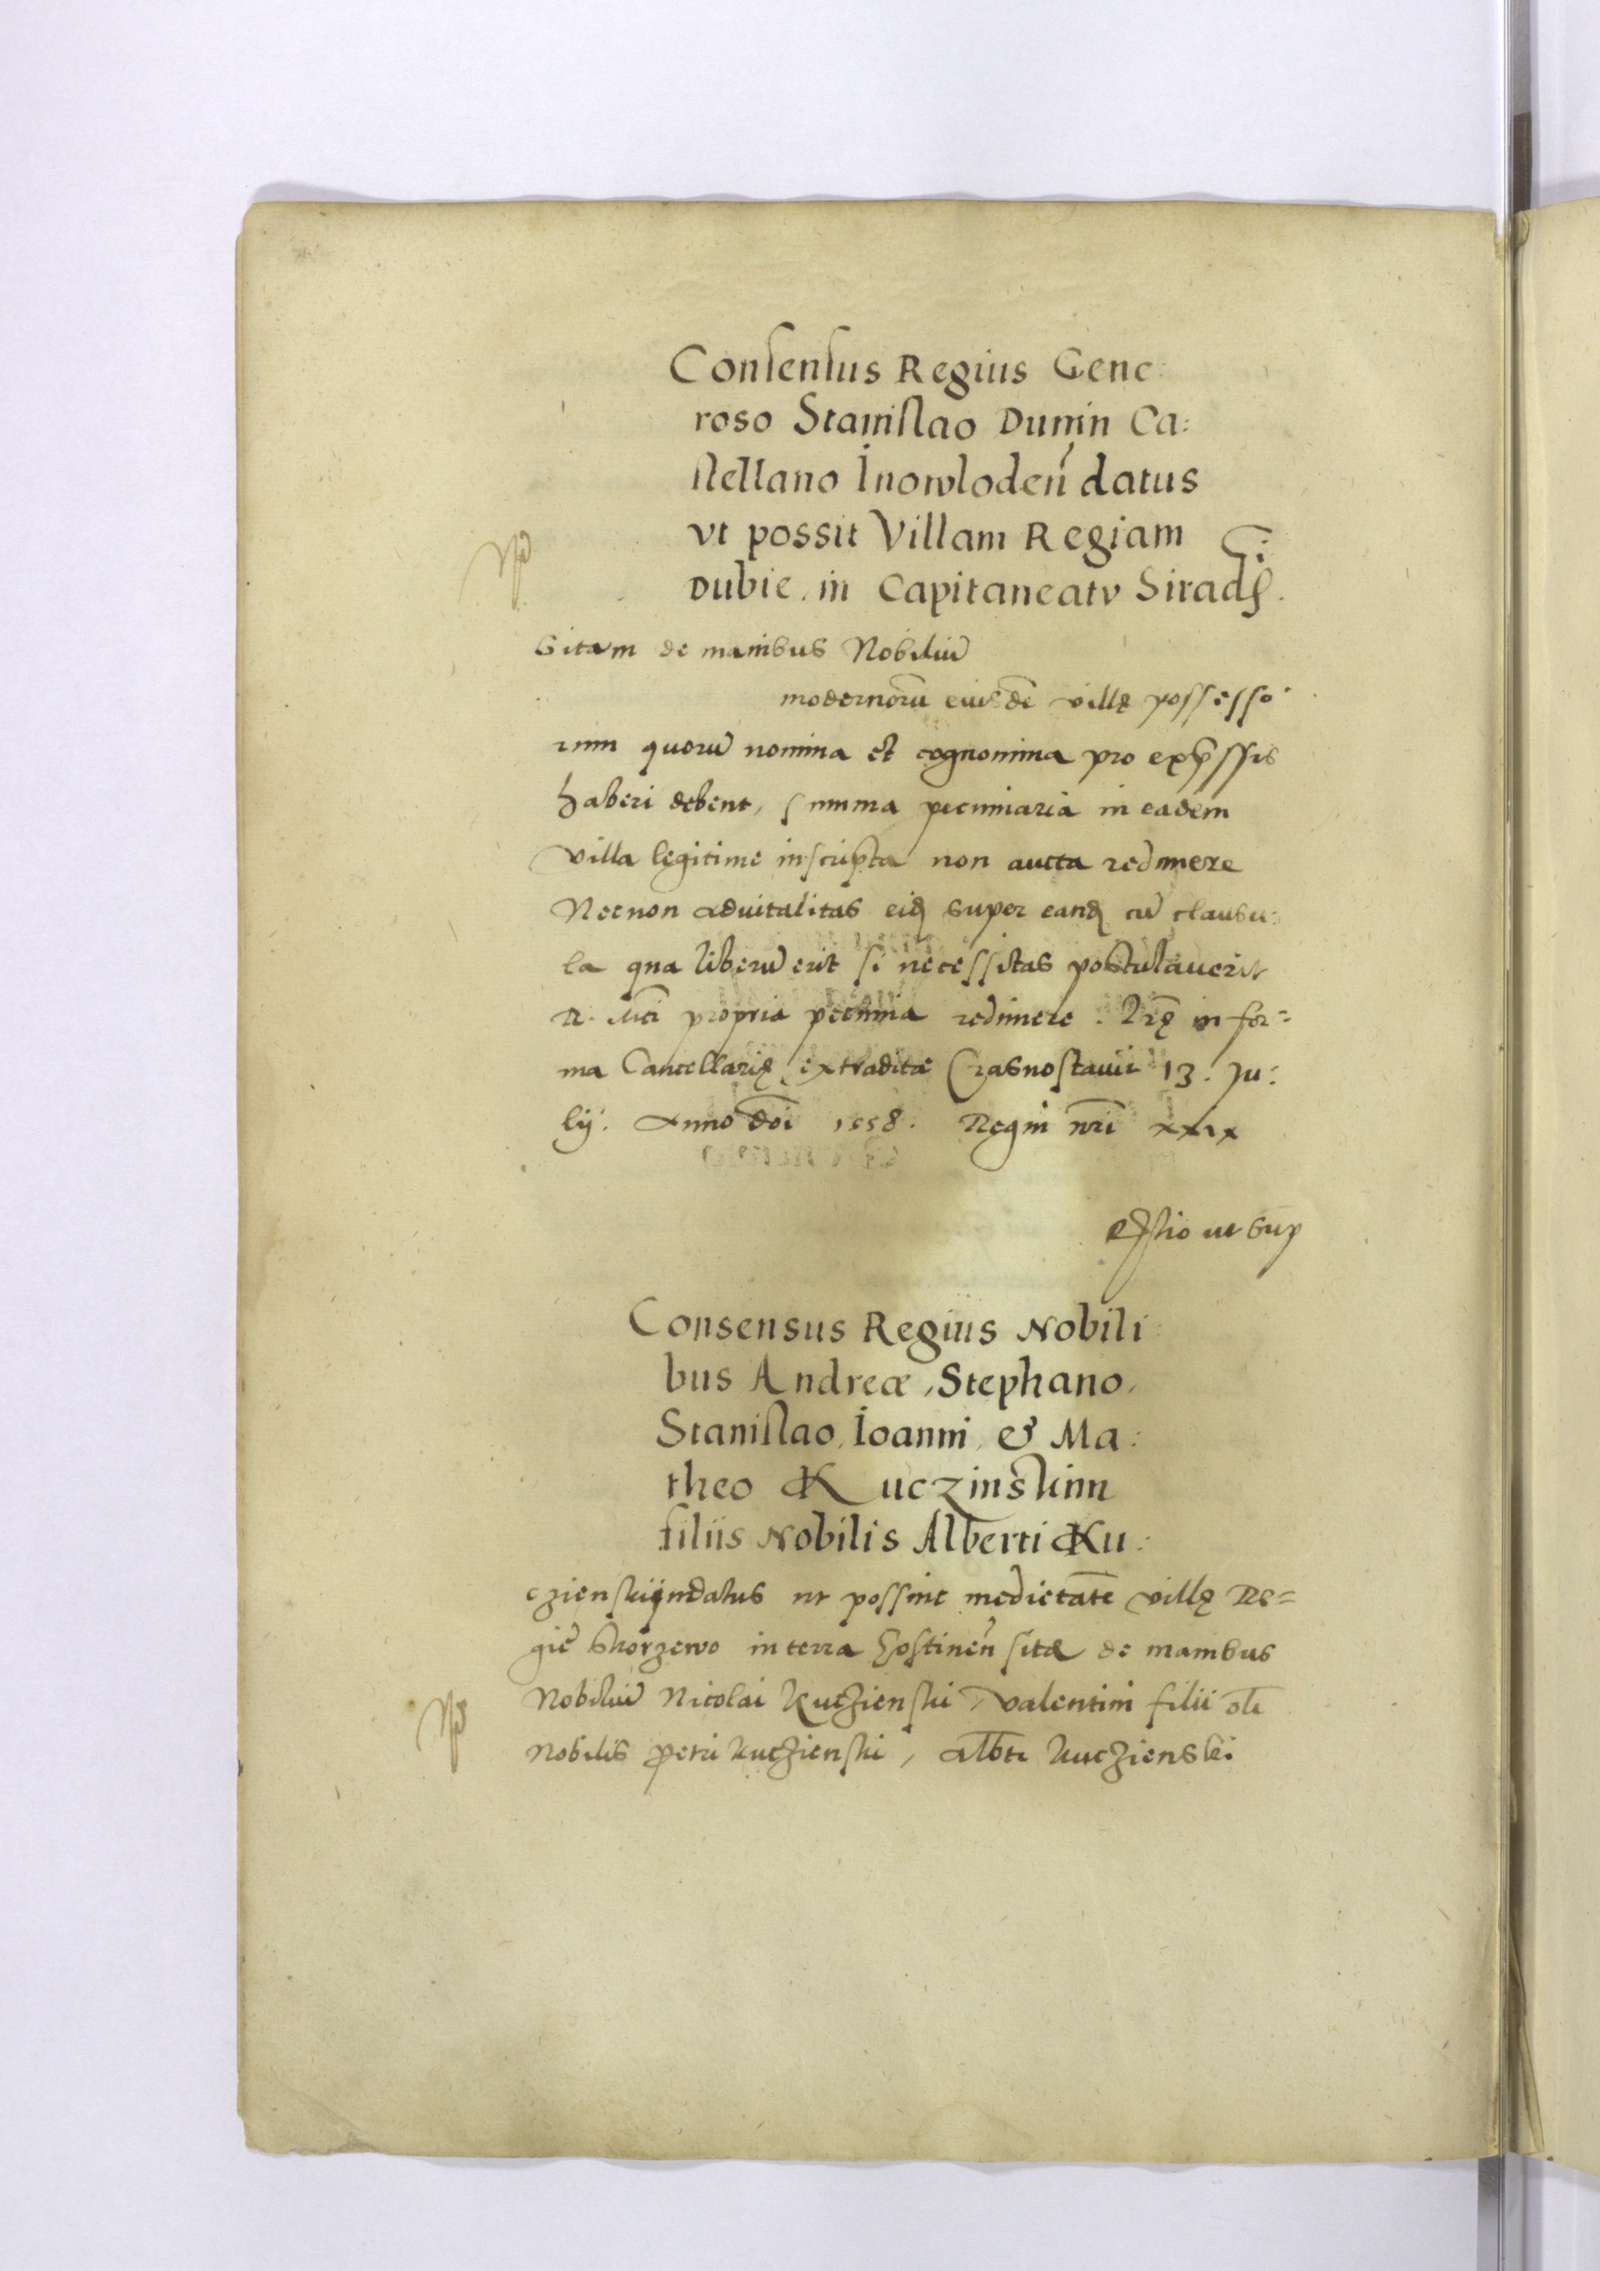 Consensus Regius Gene:
roso Stanislao Dunin Ca:
stellano Inowloden̄ datus
vt possit Villam Regiam
Dubie, in Capitaneatv Siradn̄.
sitam de manibus Nobiliū
modernorū eiusdē villę possesso
rum quorū nomina et cognomina pro exp̄ssis
haberi debent, summa pecuniaria in eadem
villa legitime inscripta non aucta redimere
Necnon aduitalitas eidꝫ super eandꝫ cū clausu:
la qua liberū erit si necessitas postulauerit
R. Mti propria pecunia redimere. Lrę in for=
ma Cancellarię extraditae Crasnostauii 13. Ju:
lij. Anno Doi 1558. Regni nr̄i xxix
ut sup
Consensus Regius Nobili:
bus Andreæ, Stephano,
Stanislao, Ioanni, & Ma:
theo Kuczinskim
filiis Nobilis Alberti Ku:
czienskij datus ut possint medietatē villę Re=
gię Skorzewo in terra Gostinen̄ sitæ de manibus
Nobiliū Nicolai Kuczienski, Valentini filii oli
Nobilis Petri Kuczienski, Albti Kuczienski